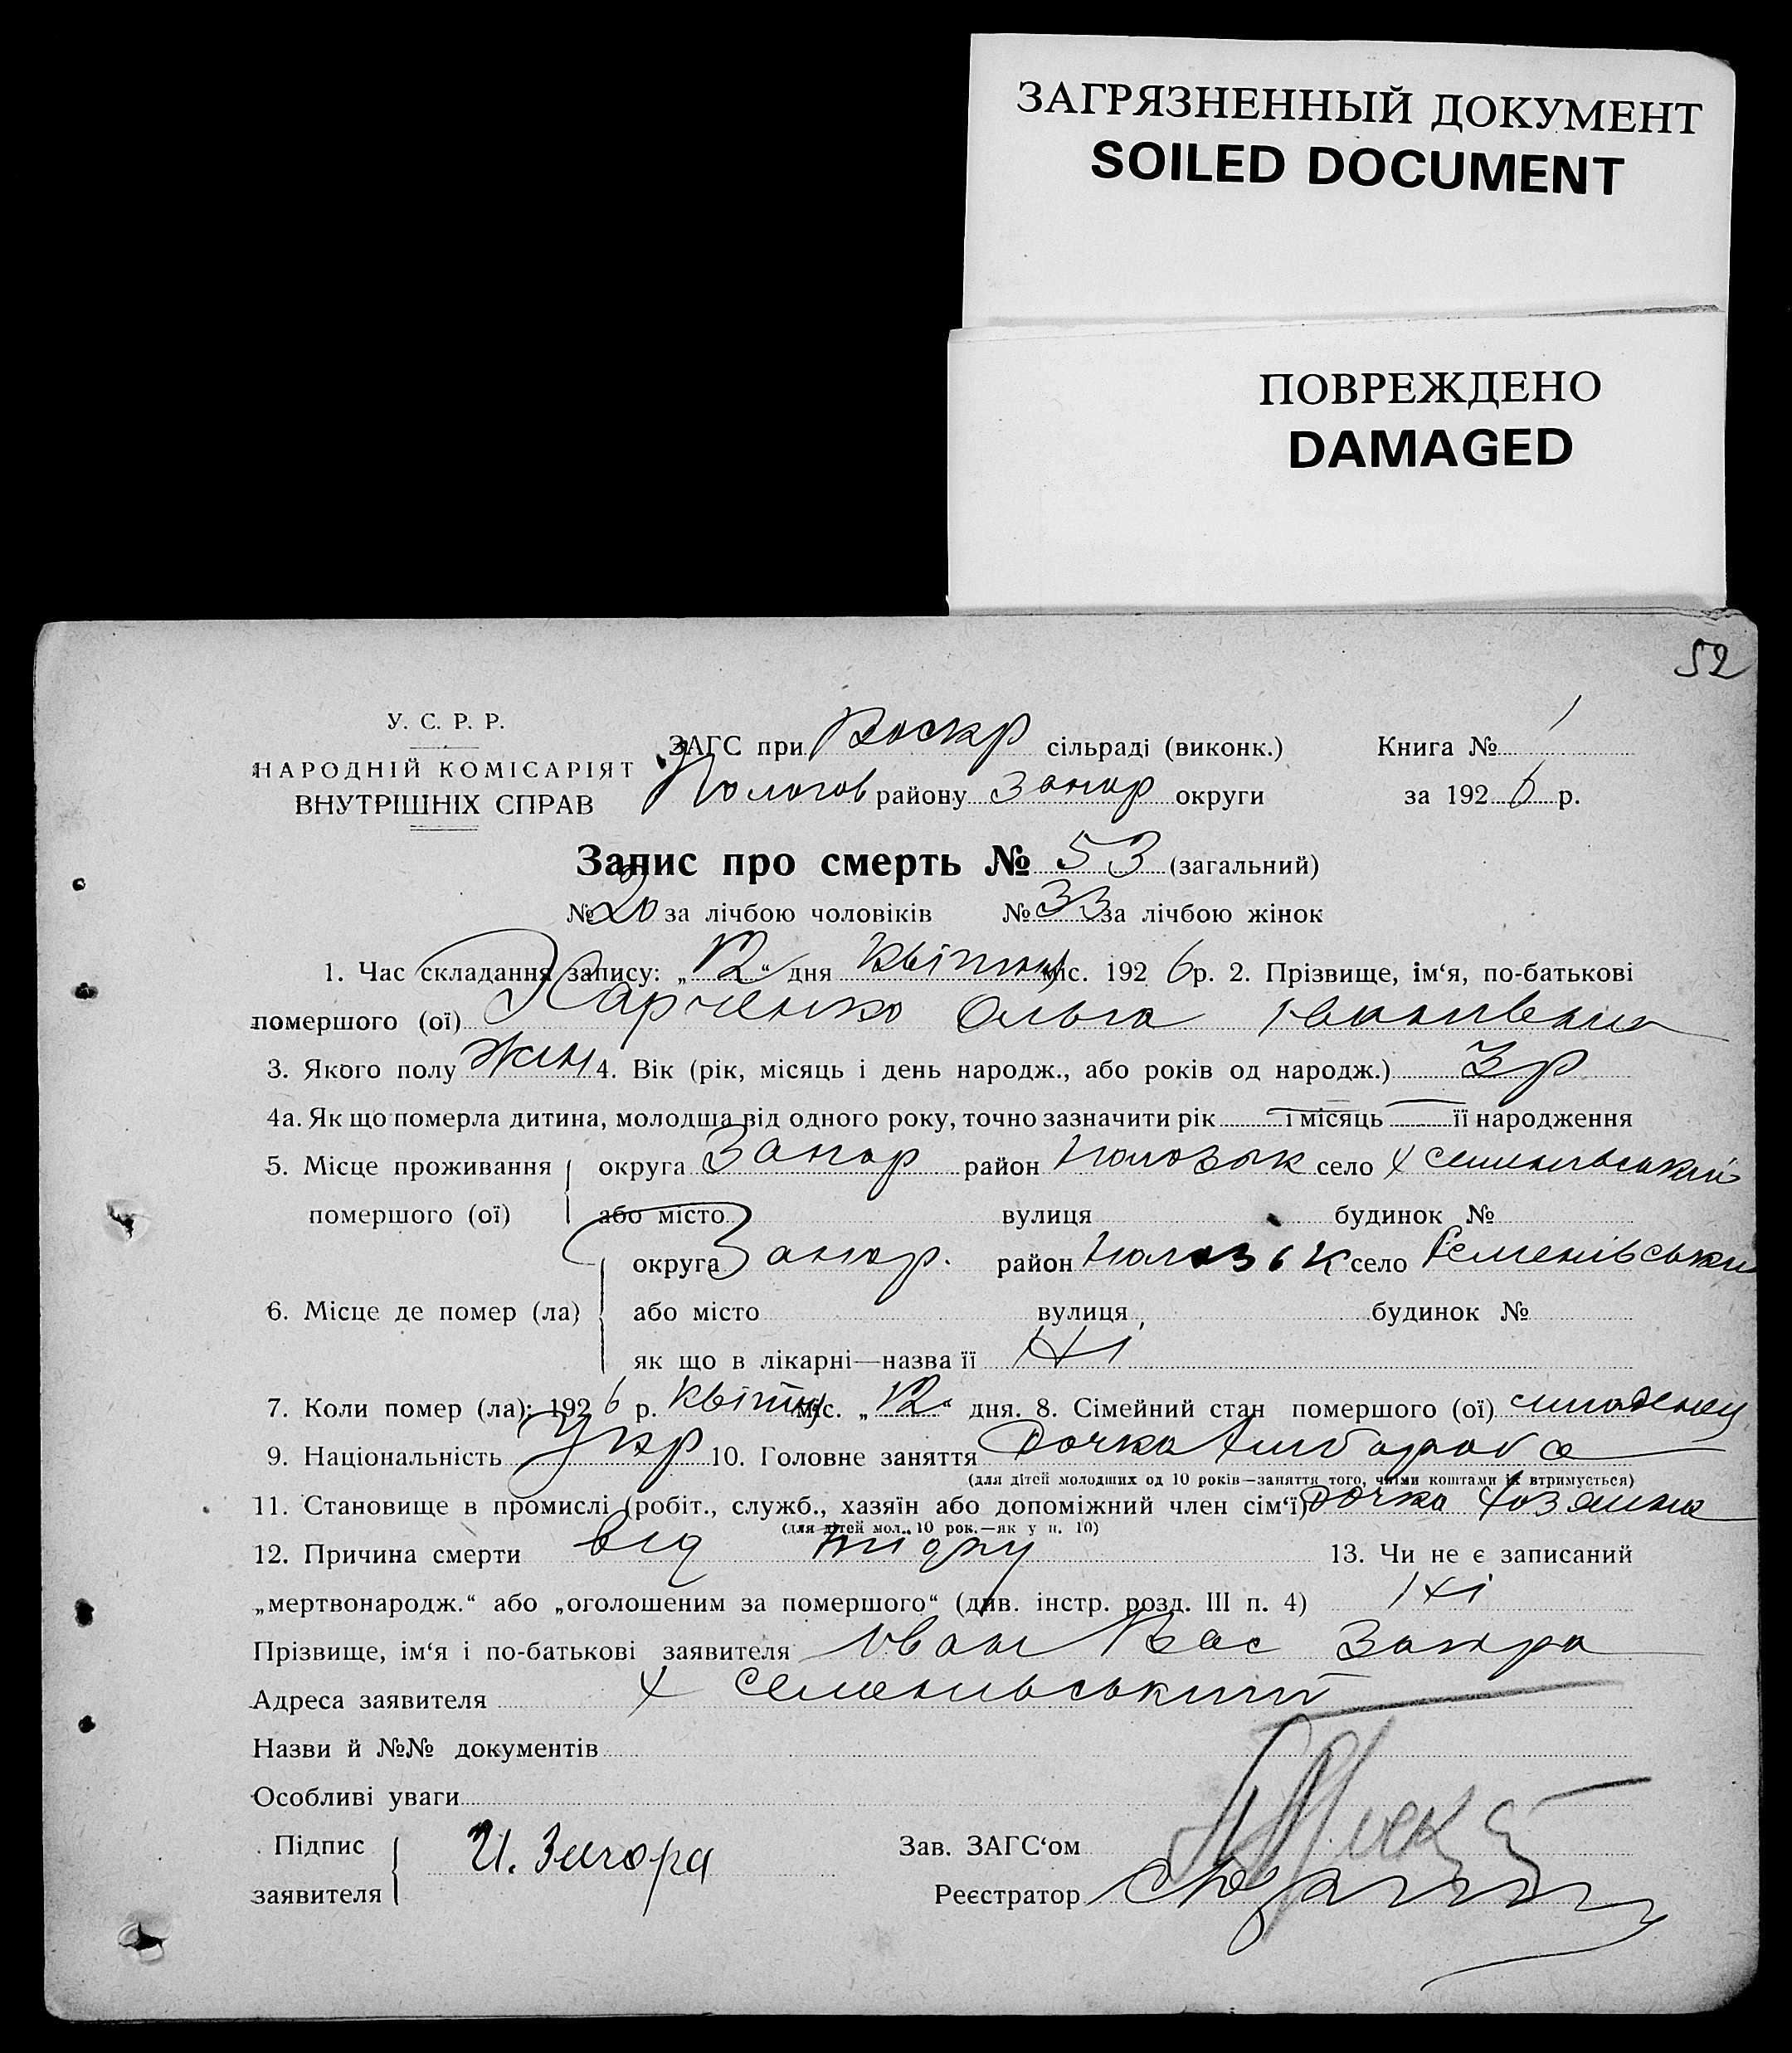 ЗАГРЯЗНЕННЫЙ ДОКУМЕНТ
SOILED DOCUMENT
ПОВРЕЖДЕНО
DAMAGED
52
У. С. Р. Р.
НАРОДНІЙ КОМІСАРІЯТ
ВНУТРІШНІХ СПРАВ
ЗАГС при Воскр сільраді (виконк.)
Пологов району Запор округи
Книга № 1
за 1926 р.
Запис про смерть № 53 (загальний)
№ 20 за лічбою чоловіків № 33 за лічбою жінок
1. Час складання запису: „12“ дня квітня міс. 1926 р. 2. Прізвище, ім‘я, по-батькові
помершого (ої) Харченко Ольга Ивановна
3. Якого полу жін 4. Вік (рік, місяць і день народж., або років од народж.) 3 р
4а. Як що померла дитина, молодша від одного року, точно зазначити рік — і місяць — її народження
5. Місце проживання округа Запор район село х Семенивський
помершого (ої) або місто вулиця будинок №
округа Запор. район село Семенівський
6. Місце де помер (ла) або місто вулиця будинок №
як що в лікарні—назва її Ні
7. Коли помер (ла): 1926 р. квітня міс. „12“ дня. 8. Сімейний стан помершого (ої)
9. Національність Укр 10. Головне заняття Дочка хлібороба
(для дітей молодших од 10 років—заняття того, чиїми коштами їх втримується)
11. Становище в промислі (робіт., служб., хазяїн або допоміжний член сім‘ї) Дочка хозяина
(для дітей мол. 10 рок.—як у п. 10)
12. Причина смерти від 13. Чи не є записаний
„мертвонародж.“ або „оголошеним за помершого“ (див. інстр. розд. III п. 4) Ні
Прізвище, ім‘я і по-батькові заявителя Иван Вас
Адреса заявителя х Семенивський
Назви й №№ документів
Особливі уваги
Підпис
заявителя И.
Зав. ЗАГС‘ом
Реєстратор